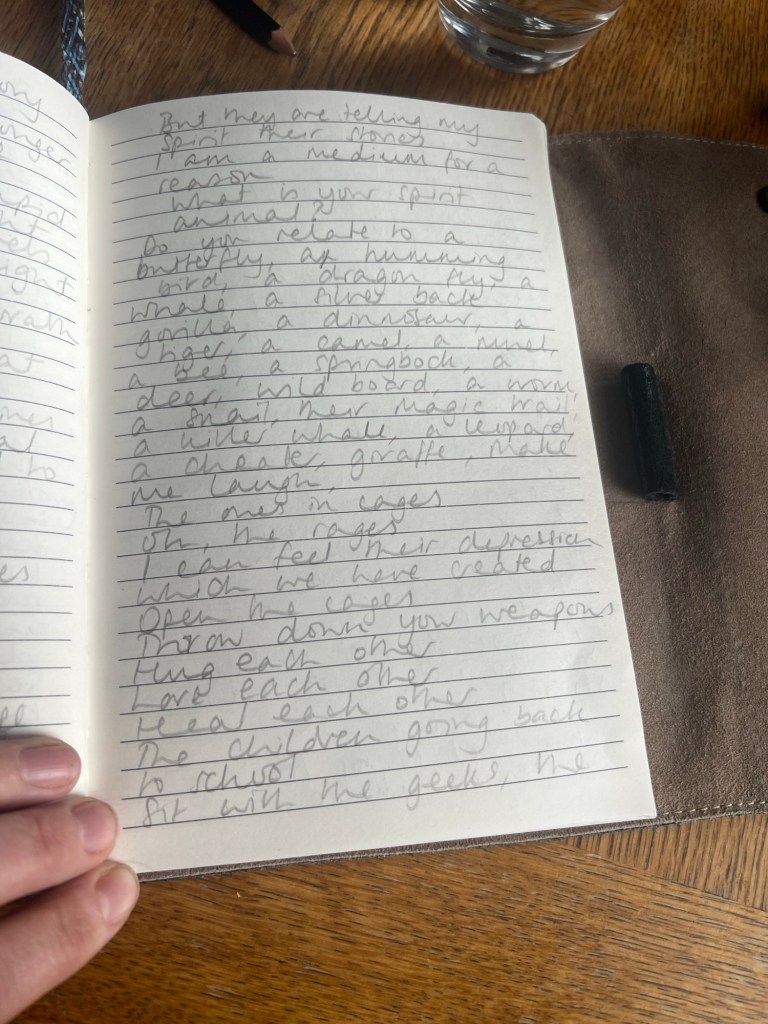 ony
unger
apid
ight
wrath
at
ones
al
to
es
ell
But they are telling my
spirit their stories
I am a medium for a
reason
What is your spirit
animal?
Do you relate to a
butterfly, a humming
bird, a dragon fly, a
whale, a silver back
gorilla, a dinnosaur, a
tiger, a camel, a
a bee, a springbock, a
deer, wild board, a worm,
a snail, their magic trail,
a killer whale, a leopard,
a cheater, giraffe, make
me laugh,
The ones in cages
Oh, the rages
I can feel their depression
which we have created
Open the cages
Throw down your weapons
Hug each other
Love each other
Heal each other
The children going back
to school
Sit with the geeks, the